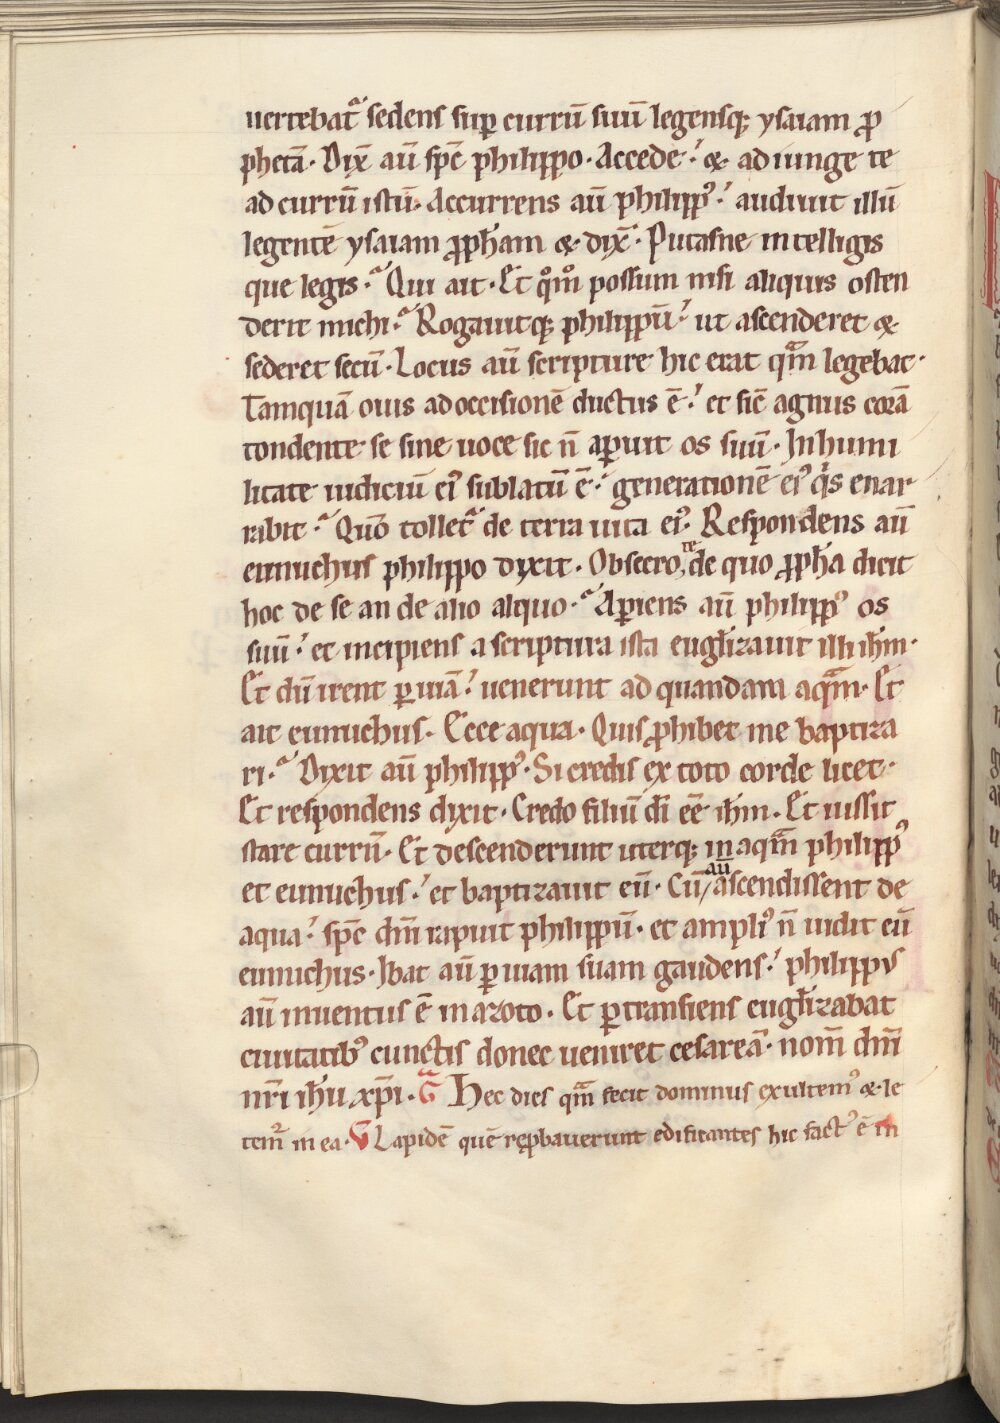 uertebat᷑ sedens sup̱ currū suū legensq; ysaiam ꝓ
phetā. Dix̄ aū sp̄c philippo. Accede: & adiunge te
ad currū istū. Accurrens aū philippꝰ: audiuit illū
legentē ysaiam ꝓph̄am & dix̄. Putasne intelligis
que legis. Qui ait. Et qͦmͦ possum nisi aliquis osten
derit michi. Rogauitq; philippū: ut ascenderet &
sederet secū. Locus aū scripture hic erat qᵃm legebat.
Tamquā ouis ad occisionē ductus ē: et sic̄ agnus corā
tondente se sine uoce sic n̄ aꝑuit os suū. In humi
litate iudiciū eiꝰ sublatū ē: generationē eiꝰ qͥs enar
rabit. Qūo tollet᷑ de terra uita eiꝰ. Respondens aū
eunuchus philippo dixit. Obsecro te de quo ꝓph̄a dicit
hoc de se an de alio alquo. Aꝑiens aū philippꝰ os
suū: et incipiens a scriptura ista eugl̄izauit illi ih̄m.
Et dū irent ꝑ uiā: uenerunt ad quandam aqᵃm. Et
ait eunuchus. Ecce aqua. Quis ꝓhibet me baptiza
ri. Dixit aū philippꝰ. Si credis ex toto corde licet.
Et respondens dixit. Credo filiū dī eē ih̄m. Et iussit
stare currū. Et descenderunt uterq; in aqᵃm philippꝰ
et eunuchus: et baptizauit eū. Cū aū ascendissent de
aqua: sp̄c dn̄i rapuit philippū. et ampliꝰ n̄ uidit eū
eunuchus. Ibat aū ꝑ uiam suam gaudens: philippus
aū inuentus ē in azoto. Et ꝑtransiens eugl̄izabat
ciuitatibꝰ cunctis donec ueniret cesareā. nom̄ dn̄i
nr̄i ih̄u xp̄i. G Hec dies qᵃm fecit dominus exultemꝰ & le
tem᷑ in ea. V Lapidē quē reꝓbauerunt edificantes hic factꝰ ē in